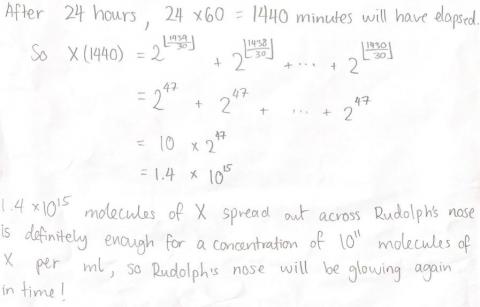 After 24 hours, 24 × 60 = 1440 minutes will have elapsed.
So X(1440) = 2^⌊1439/30⌋ + 2^⌊1438/30⌋ + ... + 2^⌊1430/30⌋
= 2^47 + 2^47 + ... + 2^47
= 10 × 2^47
= 1.4 × 10^15
1.4 × 10^15 molecules of X spread out across Rudolph's nose
is definitely enough for a concentration of 10^11 molecules of
X per ml, so Rudolph's nose will be glowing again
in time!